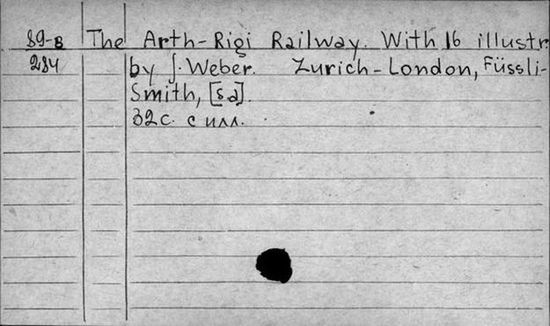 89-в The Arth-Rigi Railway. With 16 illustr.
284 by J. Weber. Zurich-London, Füssli-
Smith, [s a].
32с. с илл.